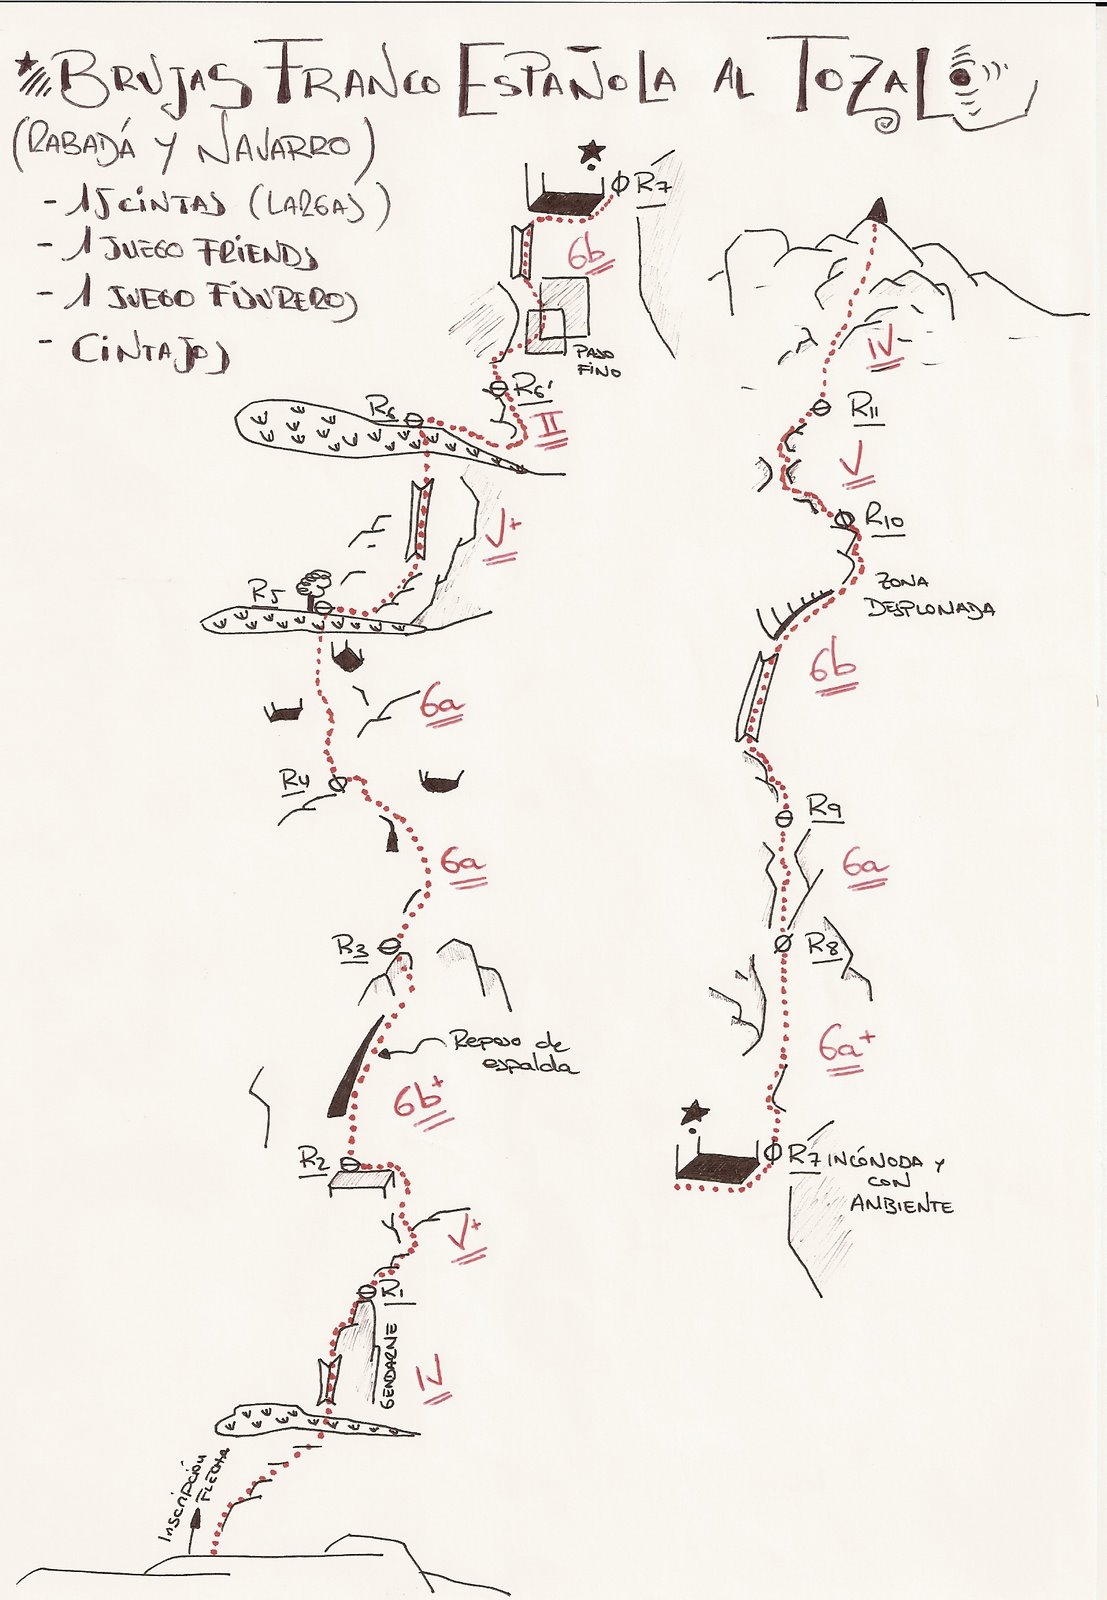 BRUJAS FRANCO ESPAÑOLA AL TOZAL
(RABADÁ Y NAVARRO)
- 15 CINTAS (LARGAS)
- 1 JUEGO FRIENDS
- 1 JUEGO FISUREROS
- CINTAJOS
R7
6b
PASO
FINO
R6'
II
R6
V+
R5
6a
R4
6a
R3
Reposo de
espalda
6b+
R2
V+
R1
GENDARME
IV
Inscripción
FLECHA
IV
R11
V
R10
ZONA
DESPLOMADA
6b
R9
6a
R8
6a+
R7 INCÓMODA Y
CON
AMBIENTE